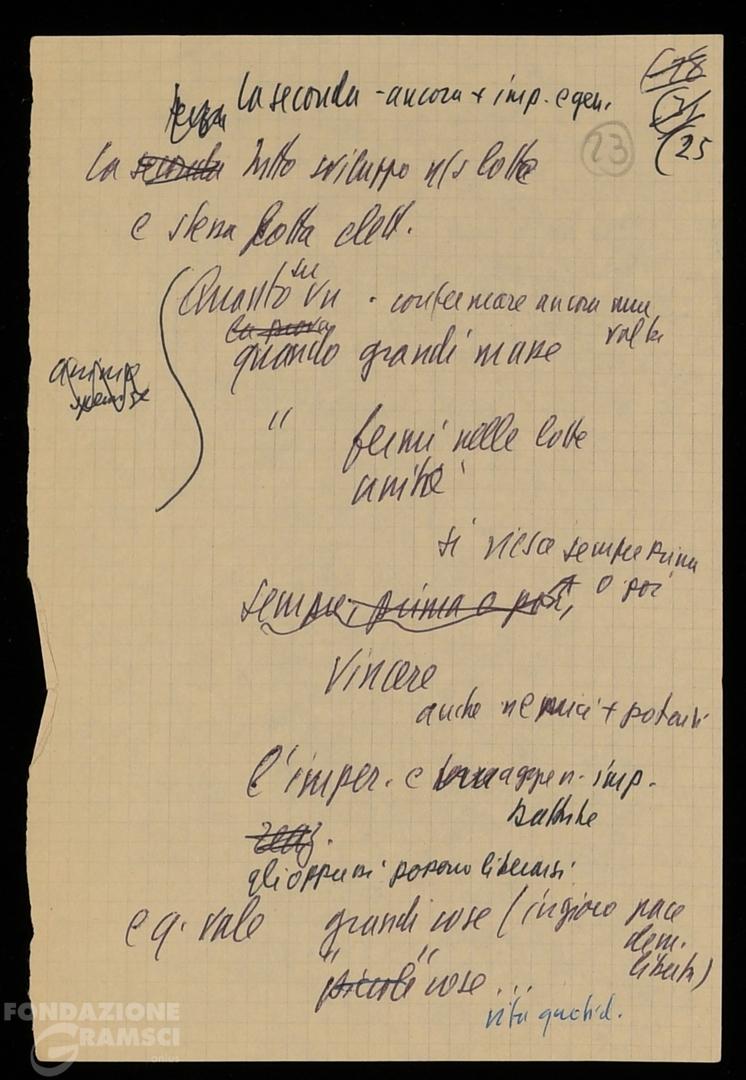 (18
(21
(25
23
terza La seconda - ancora + imp. e gen.
La seconda tutto sviluppo n/s lotte
e stessa lotta elett.
Quanto su Vn - confermare ancora una volta
la prova
quando grandi masse
" fermi nelle lotte
unità
si riesce sempre prima o poi
sempre, prima o poi,
Vincere
anche nemici + potenti
L'imper. e aggress. imp.
battute
reaz.
gli oppressi possono liberarsi
e q. vale grandi cose (in gioco pace
dem.
libertà)
"piccole" cose ...
vita quotid.
FONDAZIONE
GRAMSCI
onlus